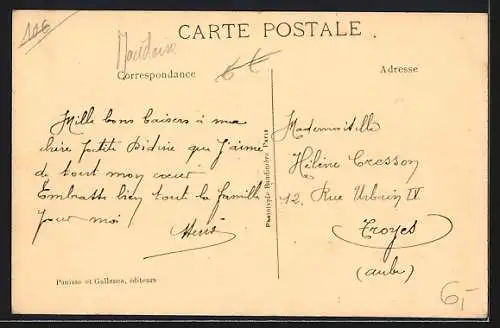 10€
CARTE POSTALE
6€
Correspondance
Adresse
Mille bons baisers à ma
chère petite Didine que J'aime
de tout mon cœur
Embrasse bien tout la famille
pour moi
Mademoiselle
Hélène Cresson
12. Rue Urbain IV
Troyes
(Aube)
Phototypie Baudinière, Paris
Panisse et Gallezza, éditeurs
6,-